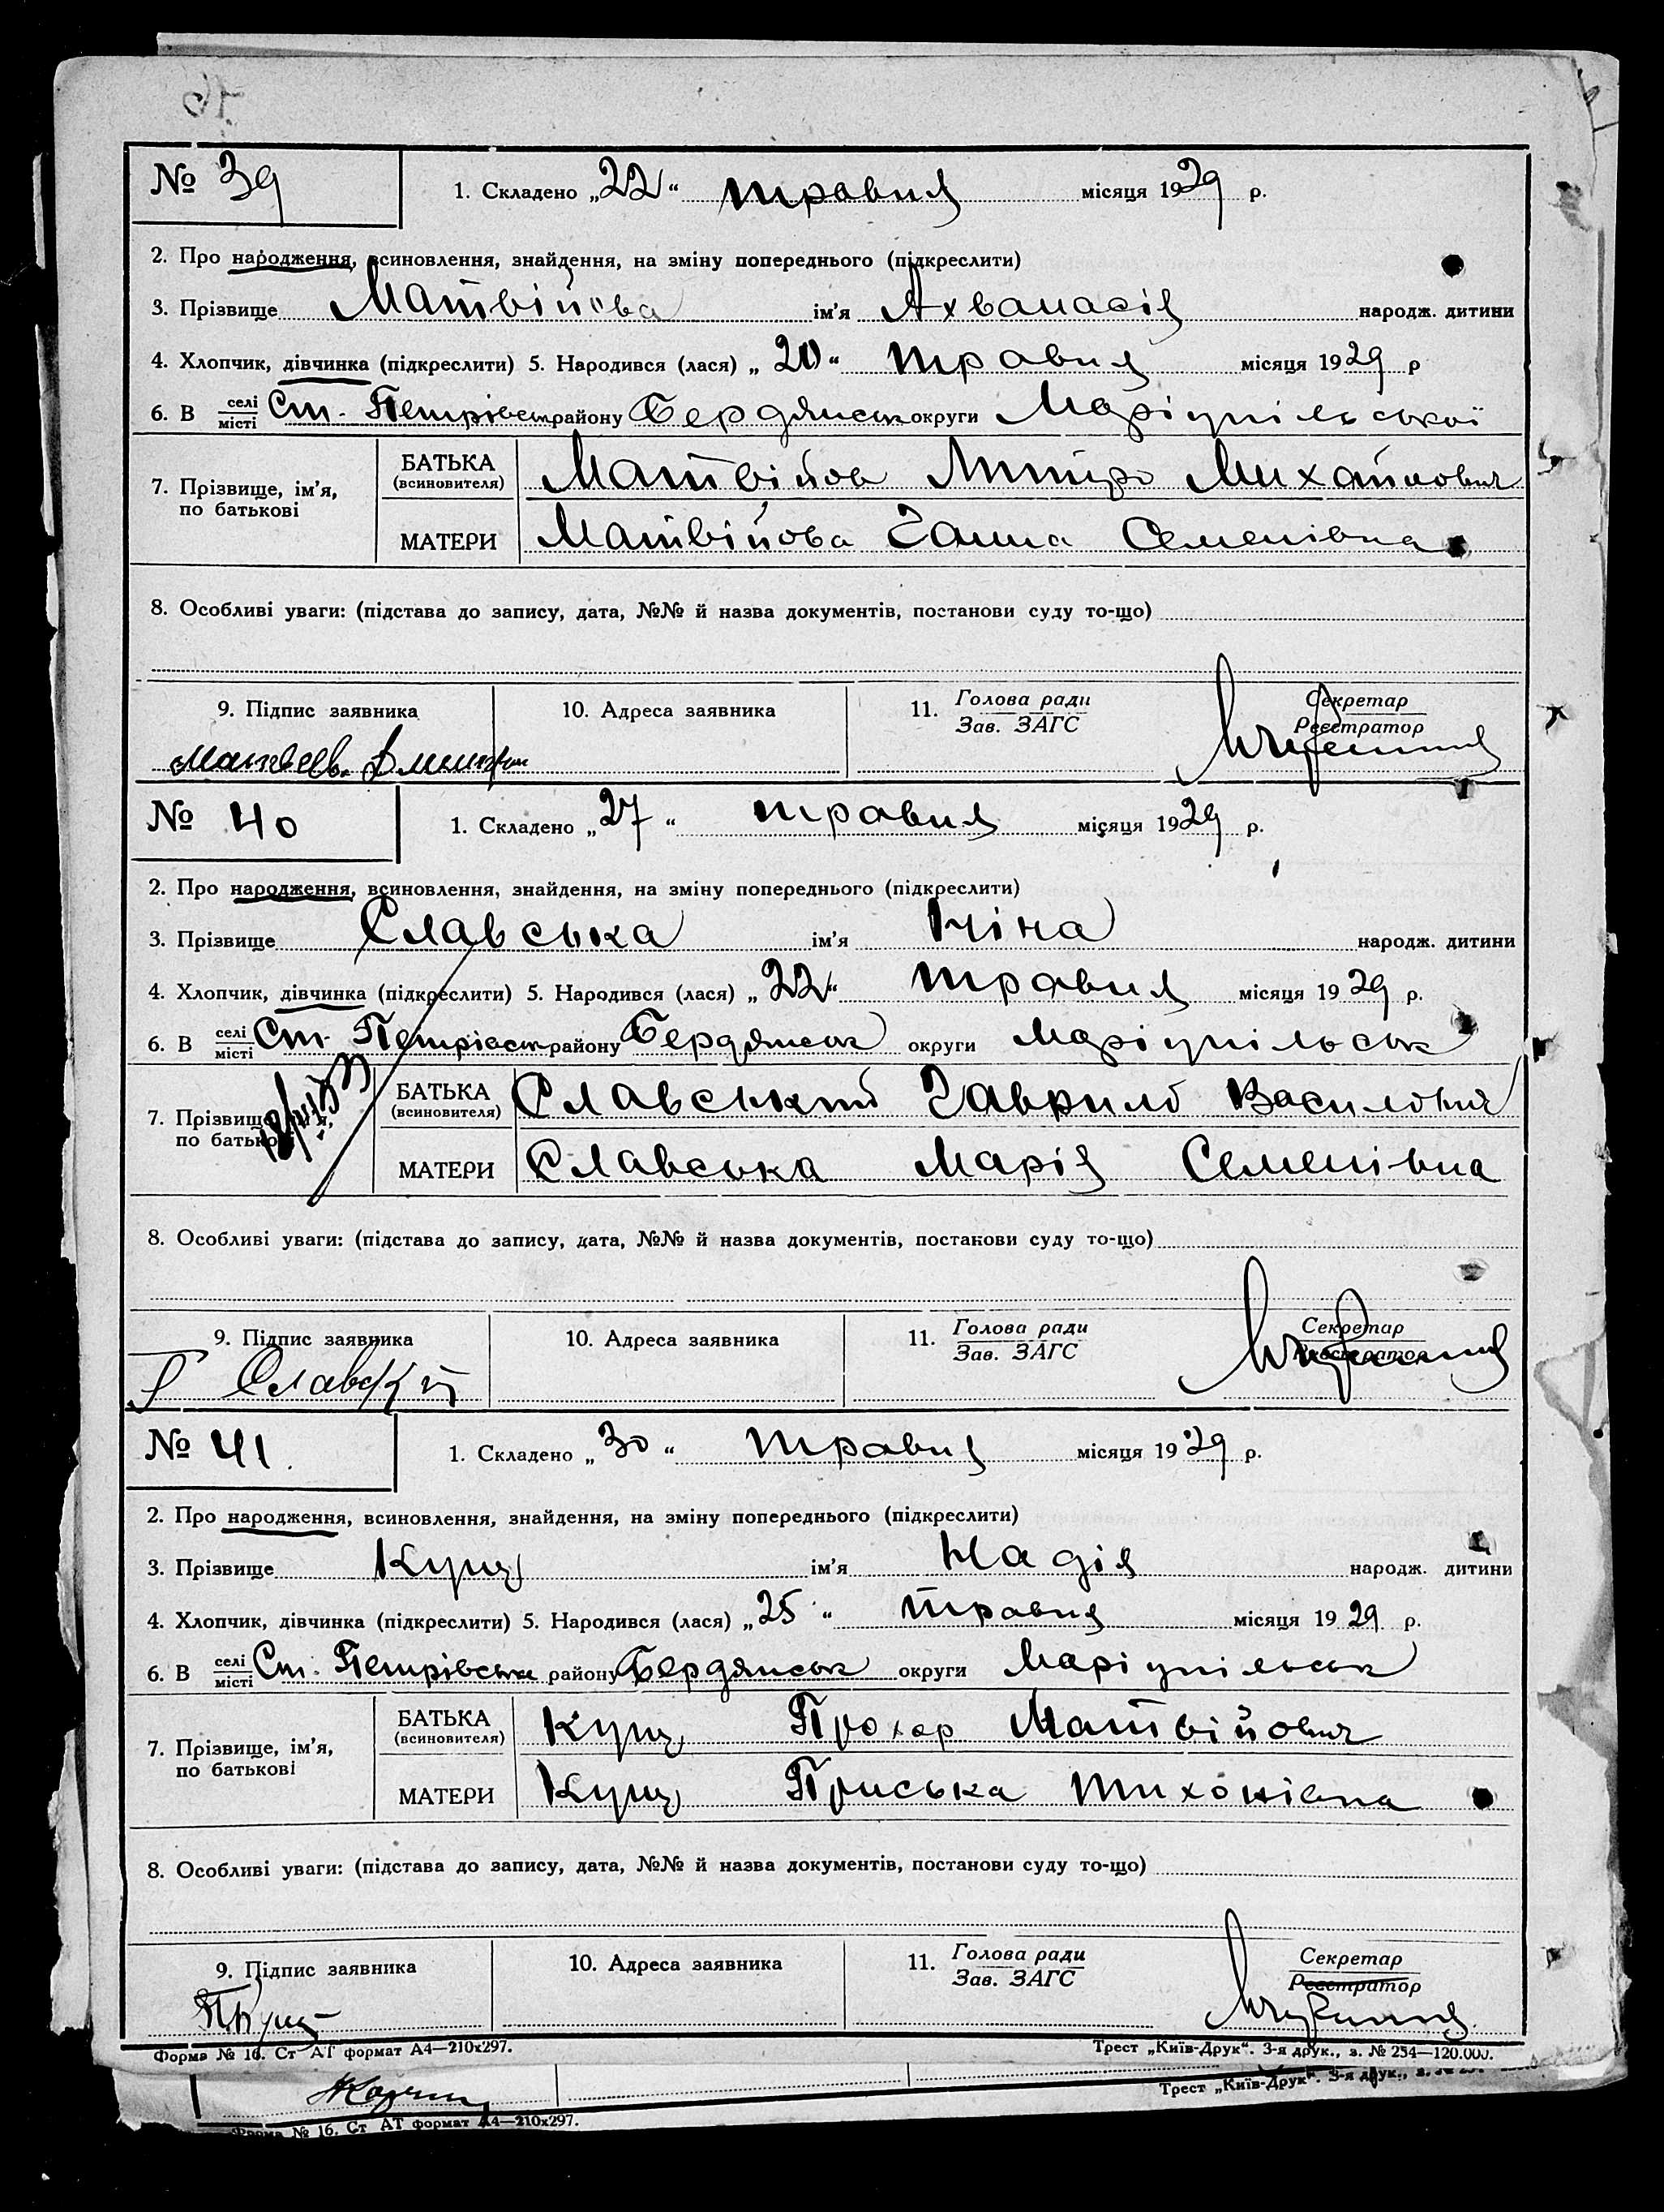 № 39 1. Складено „22“ травня місяця 1929 р.
2. Про народження, всиновлення, знайдення, на зміну попереднього (підкреслити)
3. Прізвище Матвійова ім'я Ахванасія народж. дитини
4. Хлопчик, дівчинка (підкреслити) 5. Народився (лася) „20“ травня місяця 1929 р
6. В селі місті Ст. Петрівськ району Бердянськ округи Маріупільської
7. Прізвище, ім'я, по батькові
БАТЬКА (всиновителя) Матвійов Митро Михайлович
МАТЕРИ Матвійова Ганна Семенівна
8. Особливі уваги: (підстава до запису, дата, №№ й назва документів, постанови суду то-що)
9. Підпис заявника 10. Адреса заявника 11. Голова ради Зав. ЗАГС Секретар Реєстратор
№ 40 1. Складено „27“ травня місяця 1929 р.
2. Про народження, всиновлення, знайдення, на зміну попереднього (підкреслити)
3. Прізвище Славська ім'я Ніна народж. дитини
4. Хлопчик, дівчинка (підкреслити) 5. Народився (лася) „22“ травня місяця 1929 р.
6. В селі місті Ст. Петрівськ району Бердянськ округи Маріупільськ
7. Прізвище, ім'я, по батькові
БАТЬКА (всиновителя) Славський Гаврило Василович
МАТЕРИ Славська Марія Семенівна
8. Особливі уваги: (підстава до запису, дата, №№ й назва документів, постанови суду то-що)
9. Підпис заявника 10. Адреса заявника 11. Голова ради Зав. ЗАГС Секретар Реєстратор
Г Славский
№ 41. 1. Складено „30“ травня місяця 1929 р.
2. Про народження, всиновлення, знайдення, на зміну попереднього (підкреслити)
3. Прізвище Кущ ім'я Надія народж. дитини
4. Хлопчик, дівчинка (підкреслити) 5. Народився (лася) „25“ травня місяця 1929 р.
6. В селі місті Ст. Петрівськ району Бердянськ округи Маріупільськ
7. Прізвище, ім'я, по батькові
БАТЬКА (всиновителя) Кущ Прохор Матвійович
МАТЕРИ Кущ Приська Тихонівна
8. Особливі уваги: (підстава до запису, дата, №№ й назва документів, постанови суду то-що)
9. Підпис заявника 10. Адреса заявника 11. Голова ради Зав. ЗАГС Секретар Реєстратор
П. Кущ
Форма № 16. Ст АТ формат А4—210х297. Трест „Київ-Друк“. 3-я друк., з. № 254—120.000.
Трест „Київ-Друк“. 3-я друк.,
Форма № 16. Ст АТ формат А4—210х297.